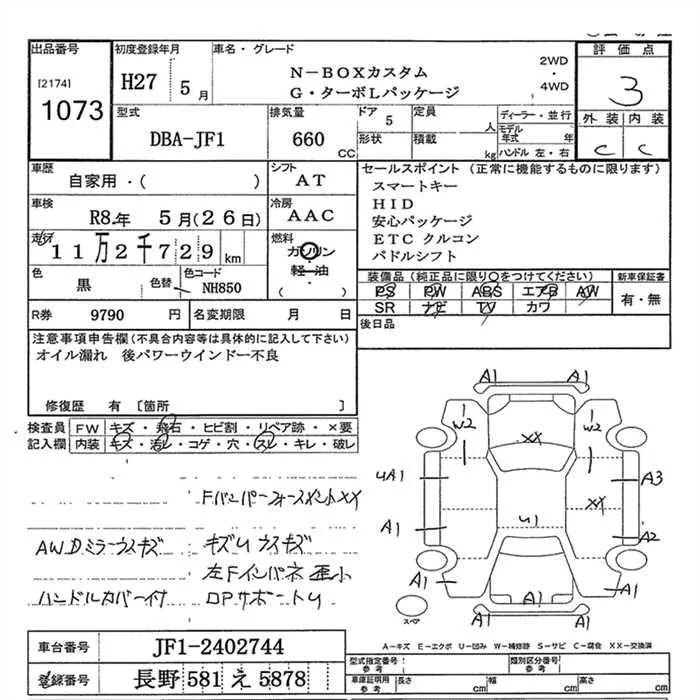 出品番号 初度登録年月 車名・グレード 評価点
[2174] H27 5月 N-BOXカスタム 2WD
・
1073 G・ターボLパッケージ 4WD 3
型式 排気量 ドア 5 定員 人 ディーラー・並行 外装 内装
DBA-JF1 660 CC 形状 積載 kg モデル年式 年 C C
ハンドル 左・右
車歴 シフト セールスポイント (正常に機能するものに限ります)
自家用・( ) AT スマートキー
車検 冷房 HID
R8年 5月(26日) AAC 安心パッケージ
走行 燃料 ETC クルコン
11万2千729km ガソリン パドルシフト
軽油
・
( )
色 色替 色コード 装備品(純正品に限り○をつけてください) 新車保証書
黒 NH850 PS PW ABS エアB AW 有・無
R券 9790 円 名変期限 月 日 SR ナビ TV カワ
後日品
注意事項申告欄(不具合内容等は具体的に記入して下さい)
オイル漏れ 後パワーウインドー不良
修復歴 有 〔箇所 〕
検査員 FW キズ・飛石・ヒビ割・リペア跡・×要
記入欄 内装 キズ・汚レ・コゲ・穴・スレ・キレ・破レ
A1 A1
W2 W2
XX
UA1 A3
XX
A1 U1 A2
A1 A1 A1
A1 A1
スペア
FバンパーフォースメントXX
AWDミラーウスキズ キズUウスキズ
左Fインパネ歪小
ハンドルカバー付 DPサポートU
A-キズ E-エクボ U-凹み W-補修跡 S-サビ C-腐食 XX-交換済
車台番号 JF1-2402744
登録番号 長野 581 え 5878
型式指定番号 参考 類別区分番号 参考
車庫証明用 参考 長さ cm 幅 cm 高さ cm